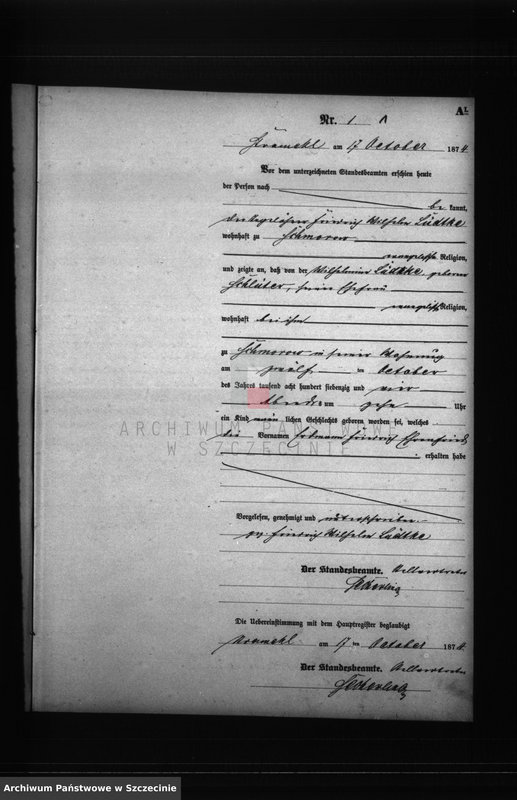 A1.
Nr. 1
am 17 October 1874.
Vor dem unterzeichneten Standesbeamten erschien heute
der Person nach
be kannt,
der Tagelöhner Friedrich Wilhelm Lüdtke
wohnhaft zu Schmorow
evangelischer Religion,
und zeigte an, daß von der Wilhelmine Lüdtke geborene
Schlüter, seine Ehefrau
evangelischer Religion,
wohnhaft bei ihm
zu Schmorow in seiner Wohnung
am zwölf ten October
des Jahres tausend acht hundert siebenzig und vier
Abends um zehn Uhr
ein Kind männ lichen Geschlechts geboren worden sei, welches
die Vornamen Erdmann Friedrich Ehrenfried
erhalten habe
ARCHIWUM PAŃSTWOWE
W SZCZECINIE
Vorgelesen, genehmigt und unterschrieben
gz. Friedrich Wilhelm Lüdtke
Der Standesbeamte. Stellvertreter
Die Uebereinstimmung mit dem Hauptregister beglaubigt
am 17 ten October 1874.
Der Standesbeamte. Stellvertreter
Archiwum Państwowe w Szczecinie